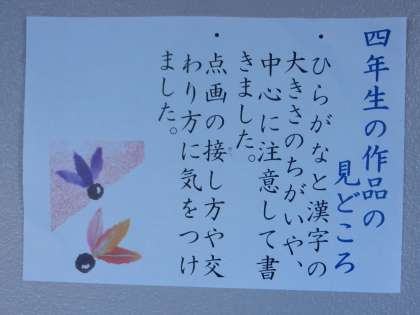 四年生の作品の
見どころ
・ひらがなと漢字の
大きさのちがいや、
中心に注意して書
きました。
・点画の接し方や交
わり方に気をつけ
ました。